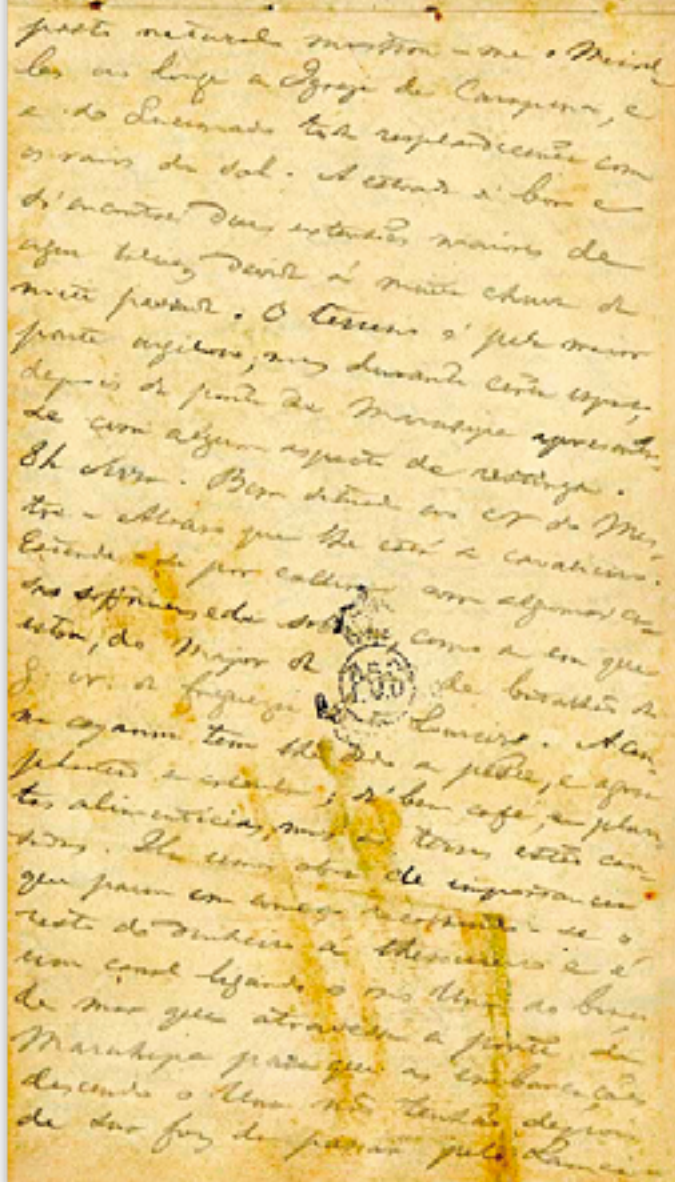 posta natural mostrou-me o Meirel-
les ao longe a Igreja de Carapina, e
a do Queimado toda resplandecente com
os raios do sol. A estrada é boa e
só encontrei duas extensões maiores de
agua talvez devida á muita chuva da
noite passada. O terreno é pela maior
parte argiloso, mas durante certo espaço,
depois da ponte da Maruhipe apresenta-
se com algum aspecto de restinga.
8h Serra. Bem situada ao do Mes-
tre - Alvaro que lhe está a cavalleiro.
Estende-se por collina com algumas ca-
sas de sob como a em que
estou, do Major de de batalhão da
g. n. da freguezia Loureiro. A can-
na cayanna tem lhe dado a peste, e agora
plantão a ; dá bem café, e plan-
tas alimenticias, mas as terras estão can-
sadas. Ha uma obra de importancia
que parou em começo recolhendo-se o
resto do dinheiro á thesouraria e é
um canal ligando o rio Una ao braço
de mar que atravessa a ponte da
Maruhipe para que as embarcações
descendo o Una não tenhão depois
de sua foz de passar pelo Lamei-